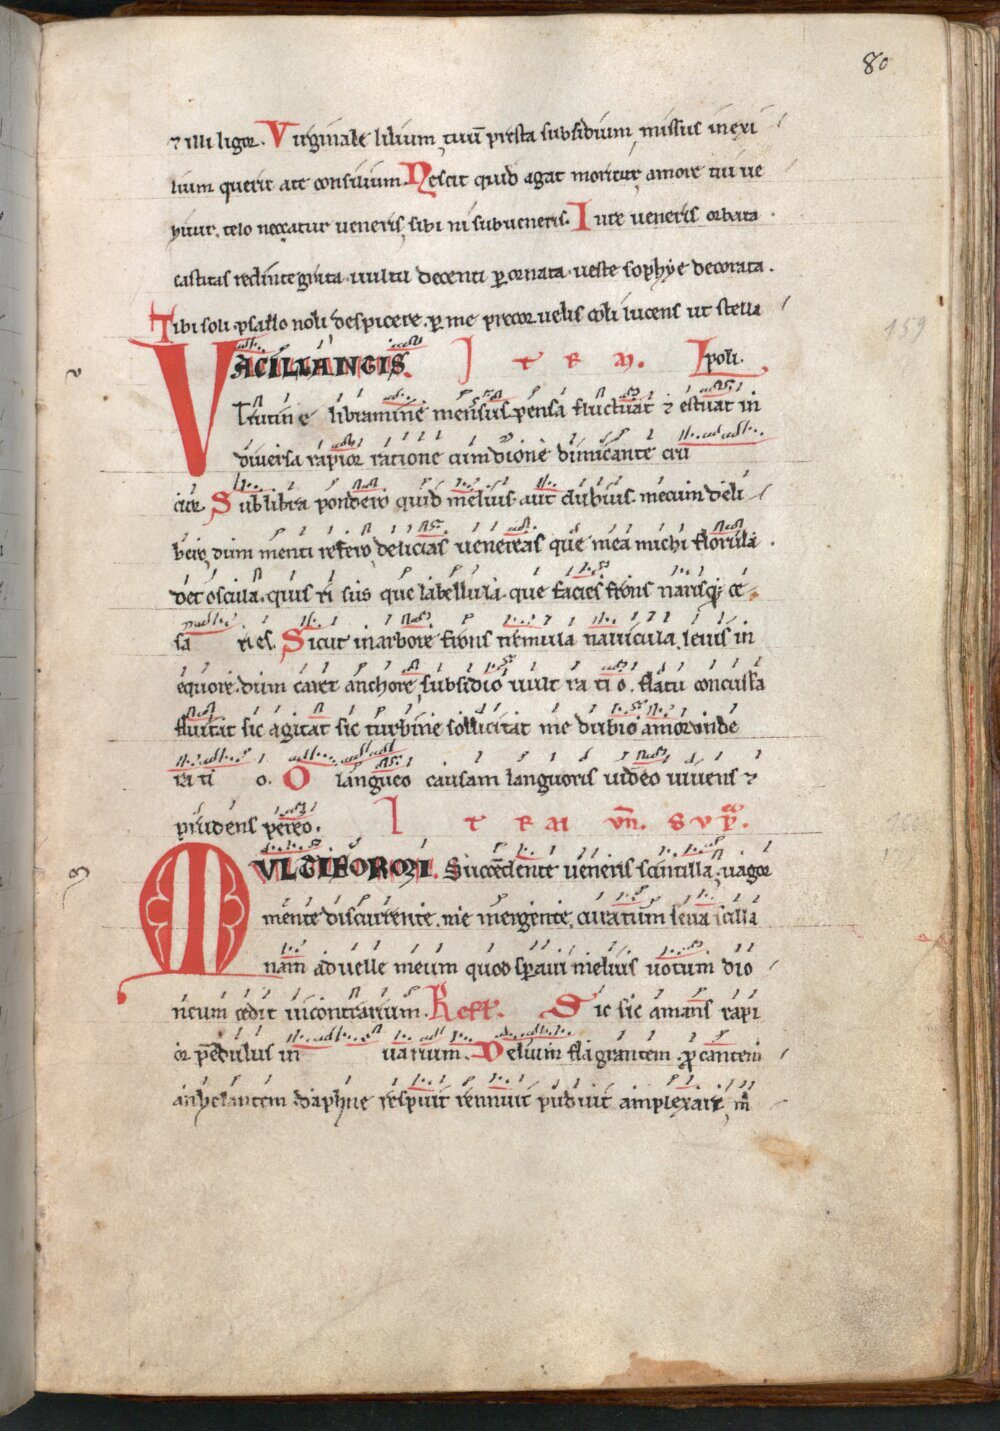 80
⁊ illi ligor. Virginale lilium, tuū presta subsidium, missus in exi
lium querit a te consilium. Nescit quid agat moritur, amore tui ve
hitur, telo necatur veneris, sibi ni subveneris. Iure veneris orbata
castitas redintegrata vultu decenti ꝑornata veste sophye decorata.
Tibi soli psallo noli despicere, ꝑ me precor velis coli lucens ut stella
159
VACILLANTIS ITEM Ypoli.
Trutine libramine mens suspensa fluctuat ⁊ estuat in
diversa rapior ratione cum dione dimicante cru
cior. Sub libra pondero quid melius aut dubius mecum deli
bero, dum menti refero delicias venereas que mea michi florula
det oscula, quis risus que labellula, que facies frons narisq; ce
sa ries. Sicut in arbore frons tremula navicula levis in
equore dum caret anchore, subsidio vult ra ti o. flatu concussa
fluitat sic agitat sic turbine sollicitat me dubio amor inde
ra ti o. O langueo causam languoris video vivens ⁊
prudens pereo.
ITEM uñ. sup.
MULTIFORMI. Succedente veneris scintilla, vagor
mente discurrente, me mergente, curarum seva scilla
nam ad velle meum quod speravi melius votum dio
neum cedit in contrarium. Refł. Sic sic amans rapi
or pendulus in varium. Delium flagrantem ꝑcantem
anhelantem daphne respuit rennuit puduit amplexari, m̄